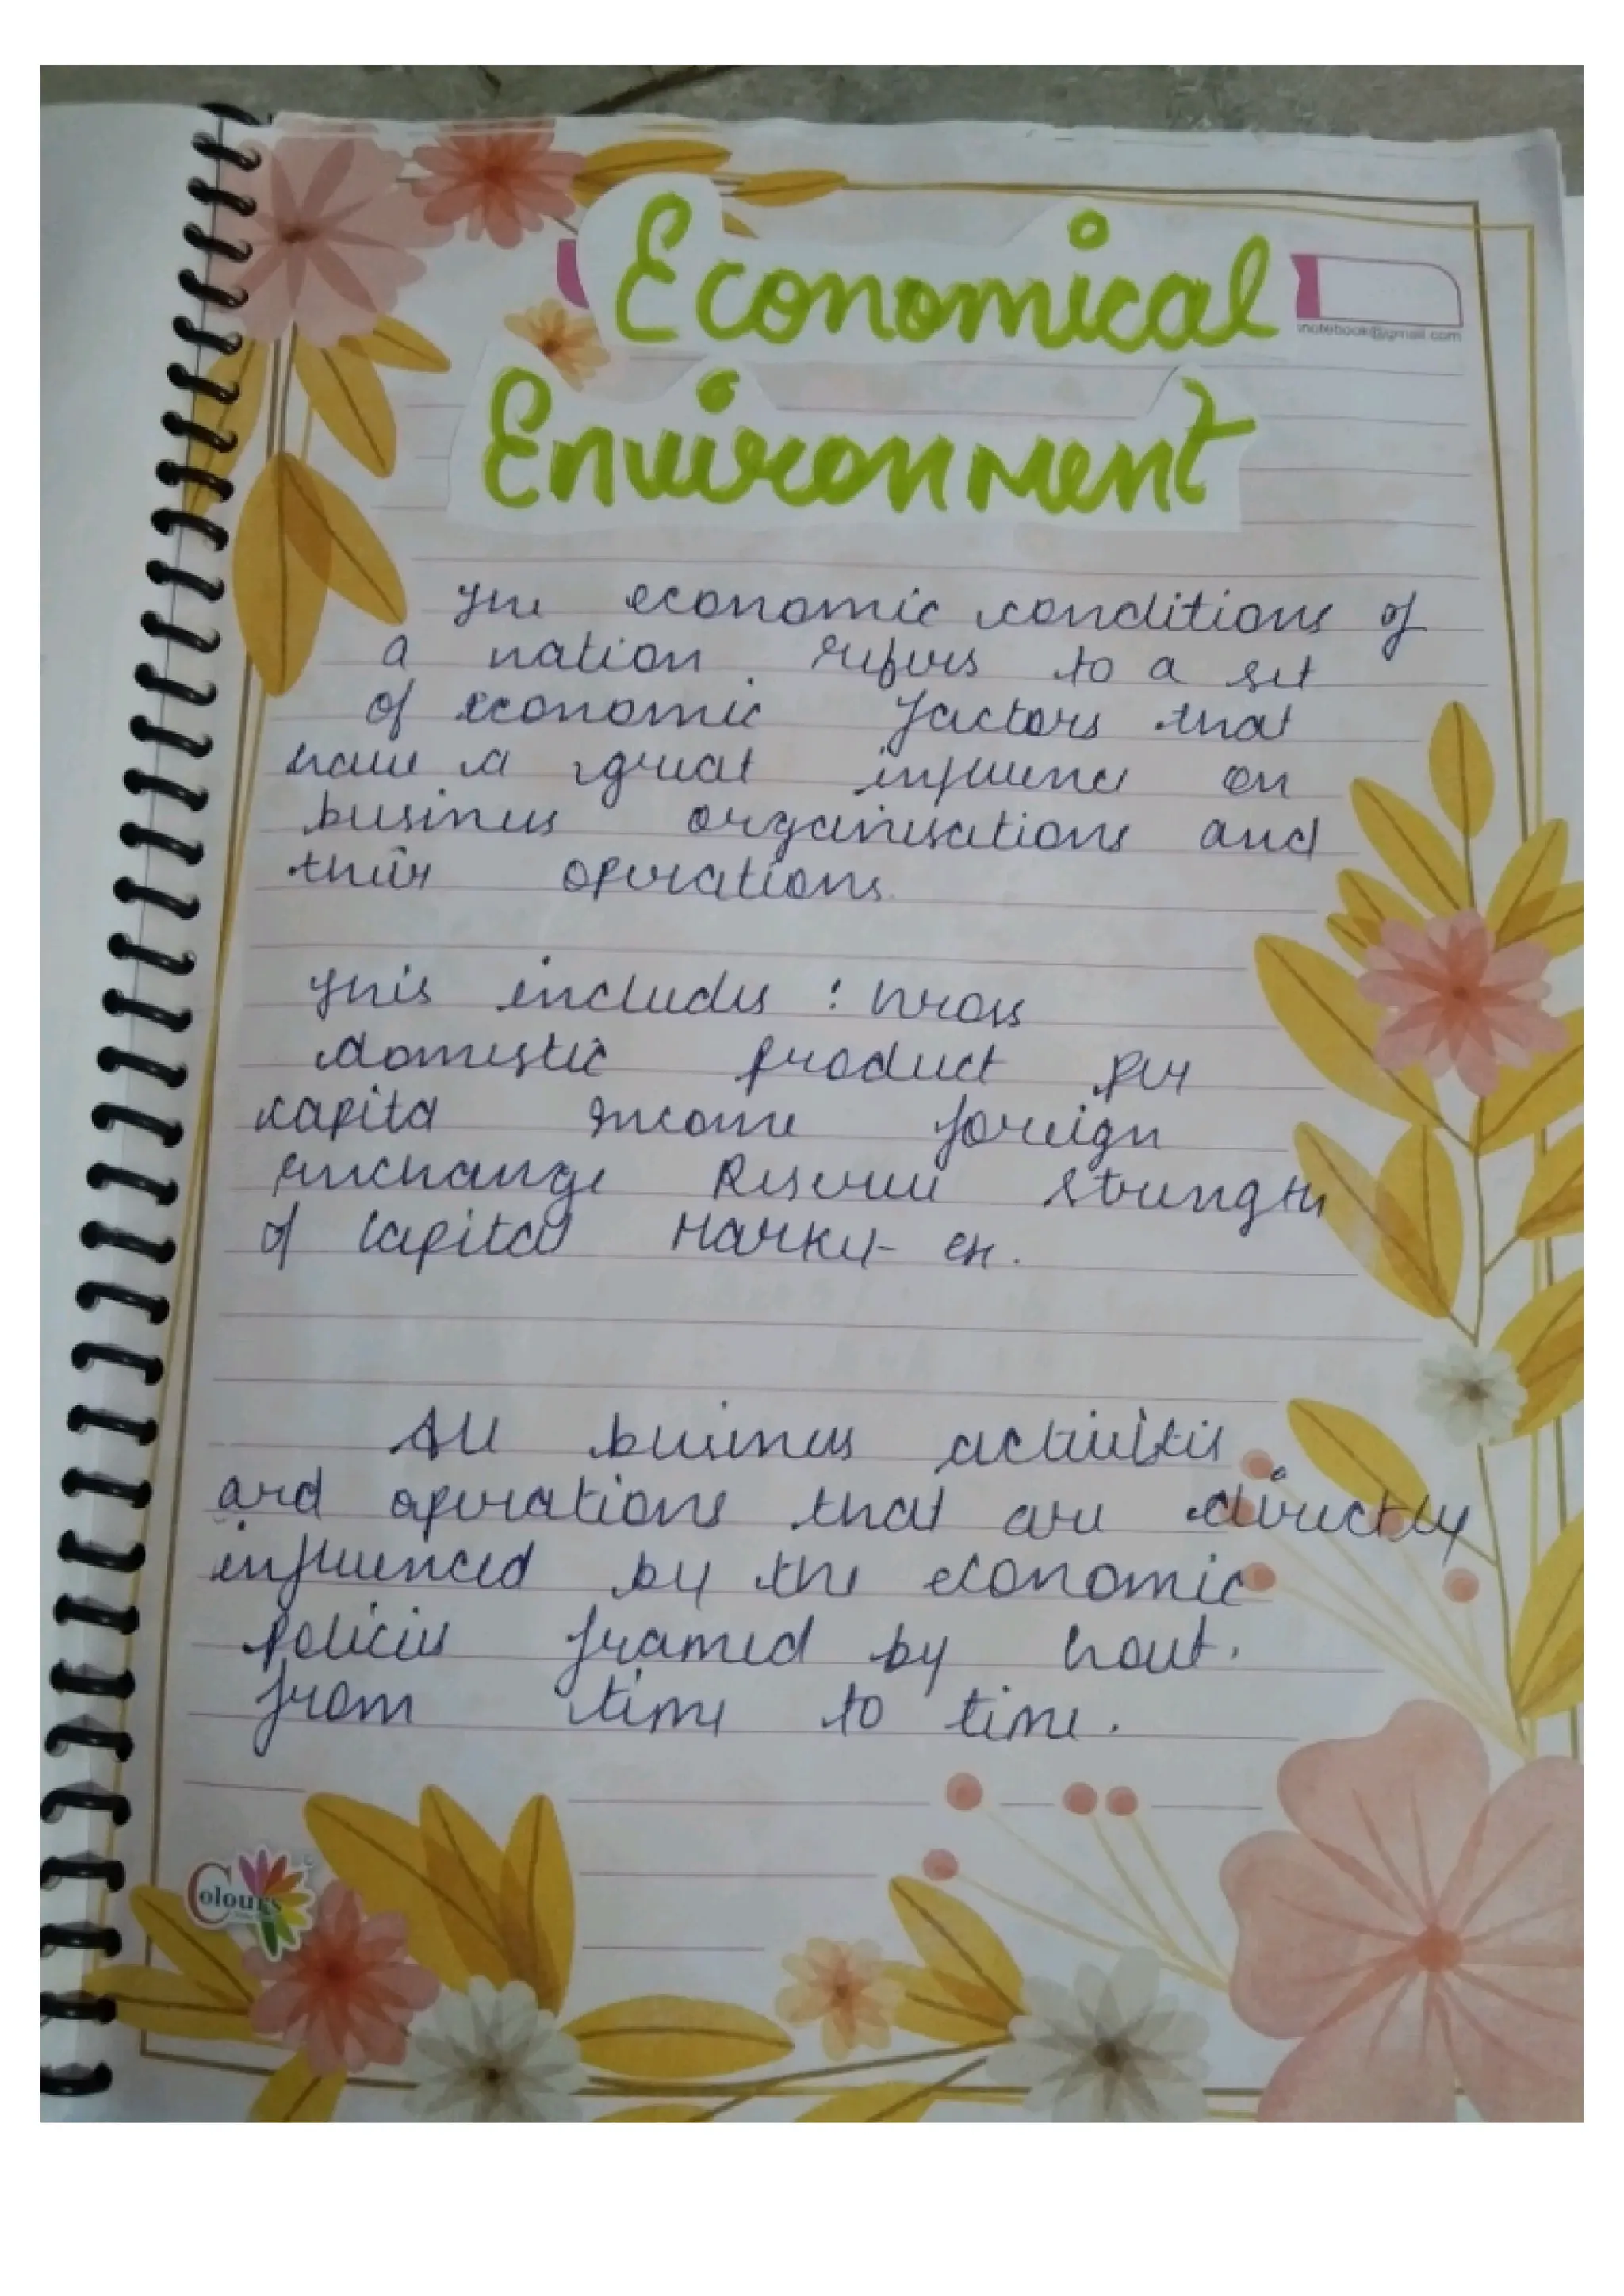 Economical
Environment
notebook@gmail.com
The economic conditions of
a nation refers to a set
of economic factors that
have a great influence on
business organisations and
their operations.
This includes : Gross
domestic product per
capita Income foreign
exchange Reserve strength
of Capital Market
All business activities
and operations that are directly
influenced by the economic
policies framed by Govt.
from time to time.
Colours